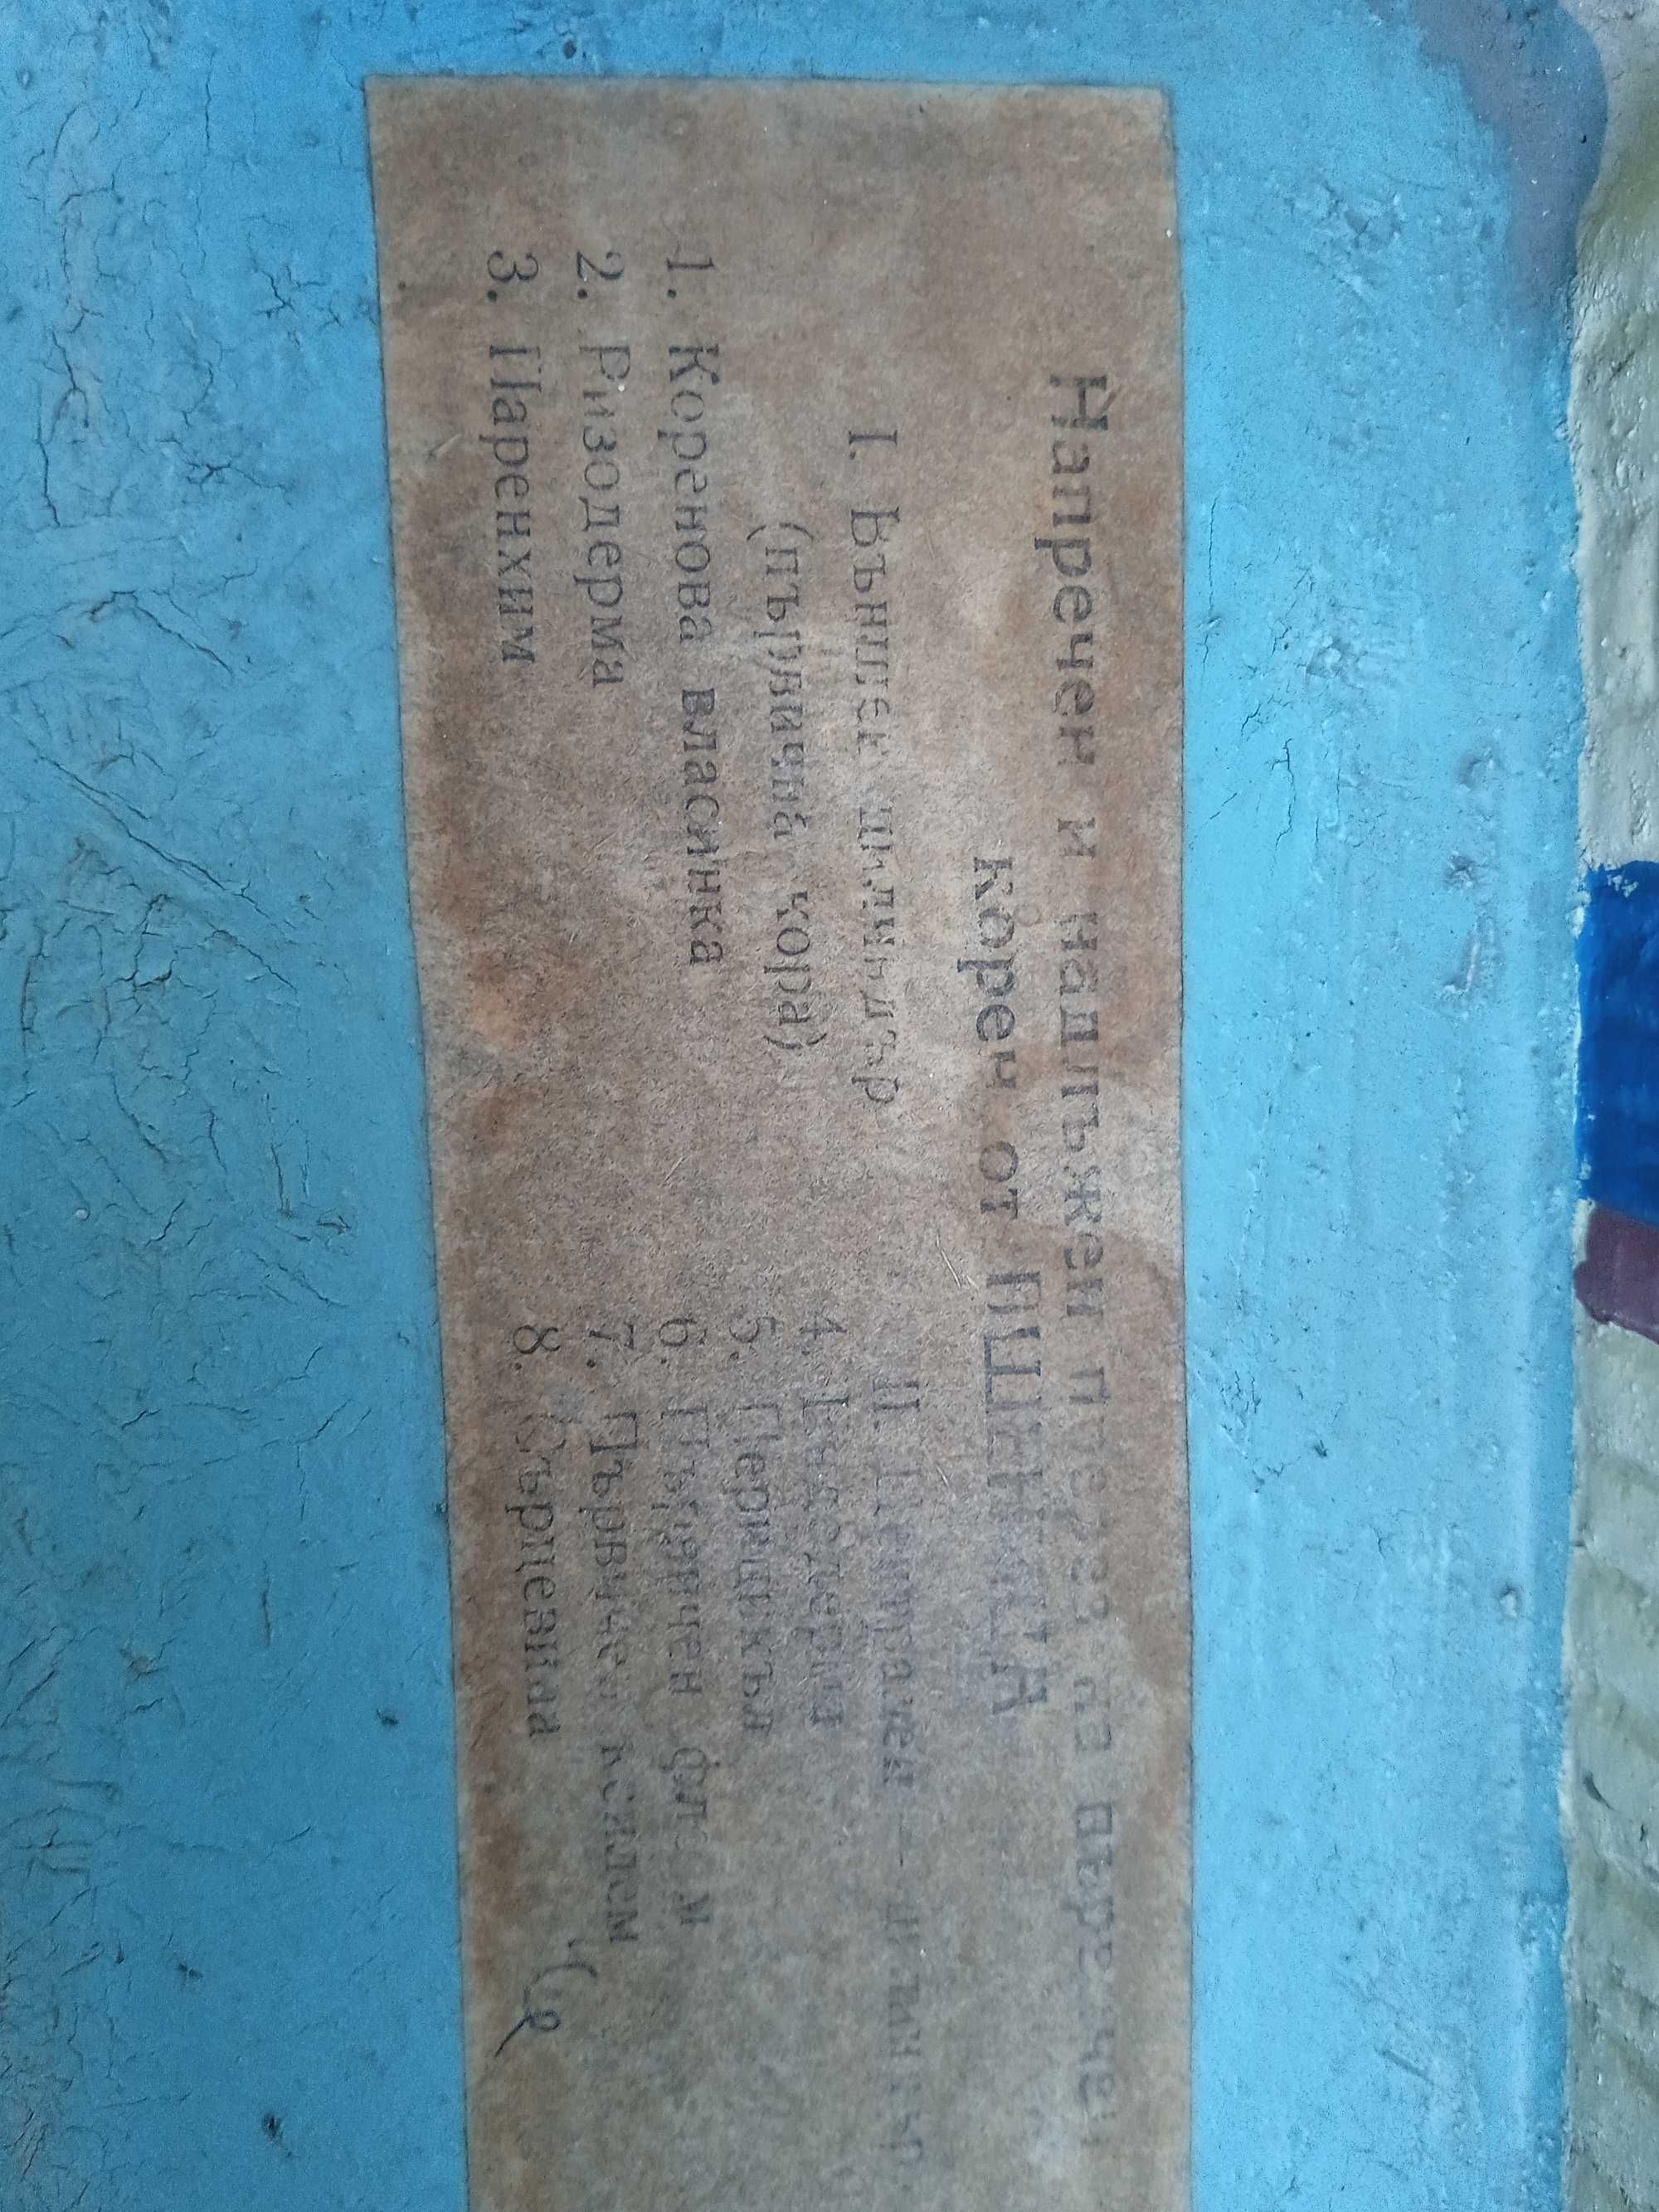 Напречен и надлъжен преразз на първичен
корен от ПШЕНИЦА
I. Външен цилиндър
(първична кора)
1. Коренова власинка
2. Ризодерма
3. Паренхим
II. Централен – цилиндър
4. Ендодерма
5. Перицикъл
6. Първичен флоем
7. Първичен ксилем
8. Сърцевина